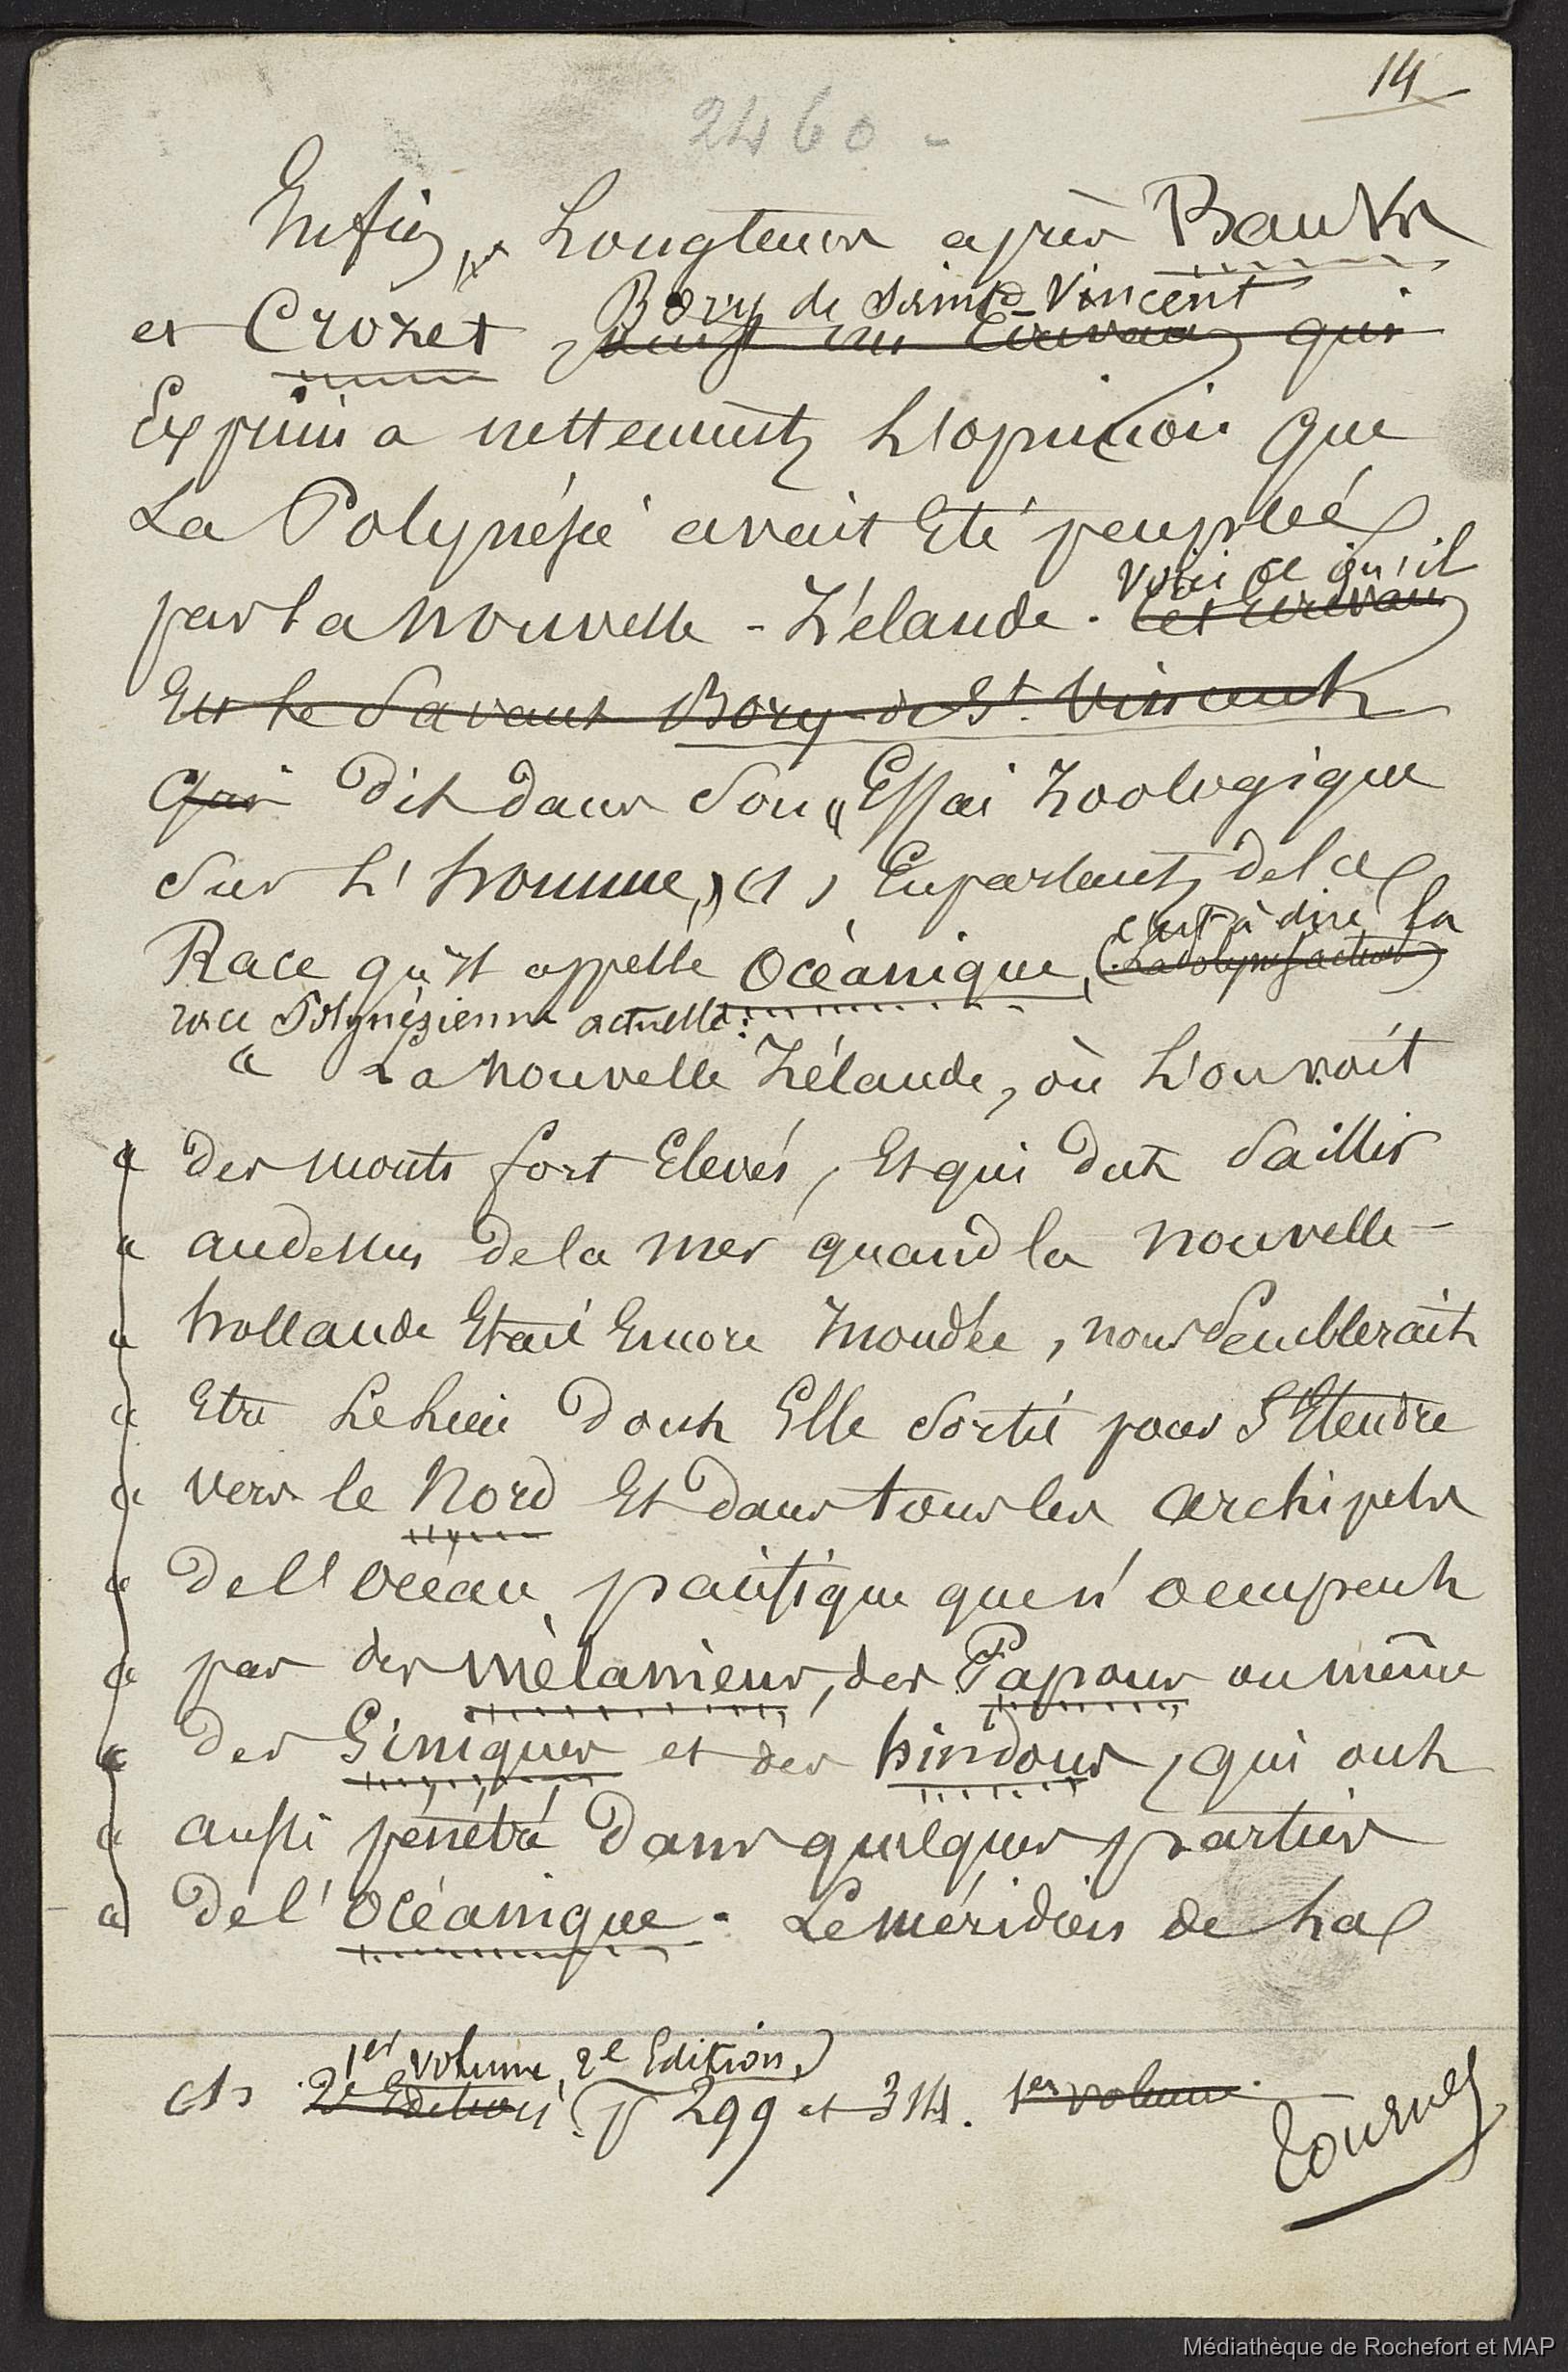 14
2460 -
Enfin, Longtems après Banks
Bory de Saint-Vincent
et Crozet, un Ecrivain qui
Exprima nettement L'opinion que
La Polynésie avait Eté peuplée
Voici ce qu'il
par la nouvelle-Zélande. Cet Ecrivain
Est le Savant Bory de St. Vincent
qui dit dans Son "Essai Zoologique
Sur L'homme," (1) En parlant de la
c'est à dire la
Race qu'il appelle Océanique, (La Polynes. actuelle)
race Polynésienne actuelle:
" La nouvelle Zélande, où L'on voit
" des monts fort Elevés, Et qui dut Saillir
" audessus de la mer quand la nouvelle-
" hollande Etait Encore inondée, nous Semblerait
" Etre Le Lieu dont Elle Sortit pour S'Etendre
" vers le Nord Et dans tous les archipels
" de l'océan pacifique que n'occupent
" pas des mélaniens, des Papous ou même
" des Siniques et des hindous, qui ont
" aussi pénétré dans quelques parties
" de l'océanique. Le méridien de La
1er volume, 2e Edition,
(1) 2e Edition, P 299 et 314. 1er volume.
Tournez
Médiathèque de Rochefort et MAP